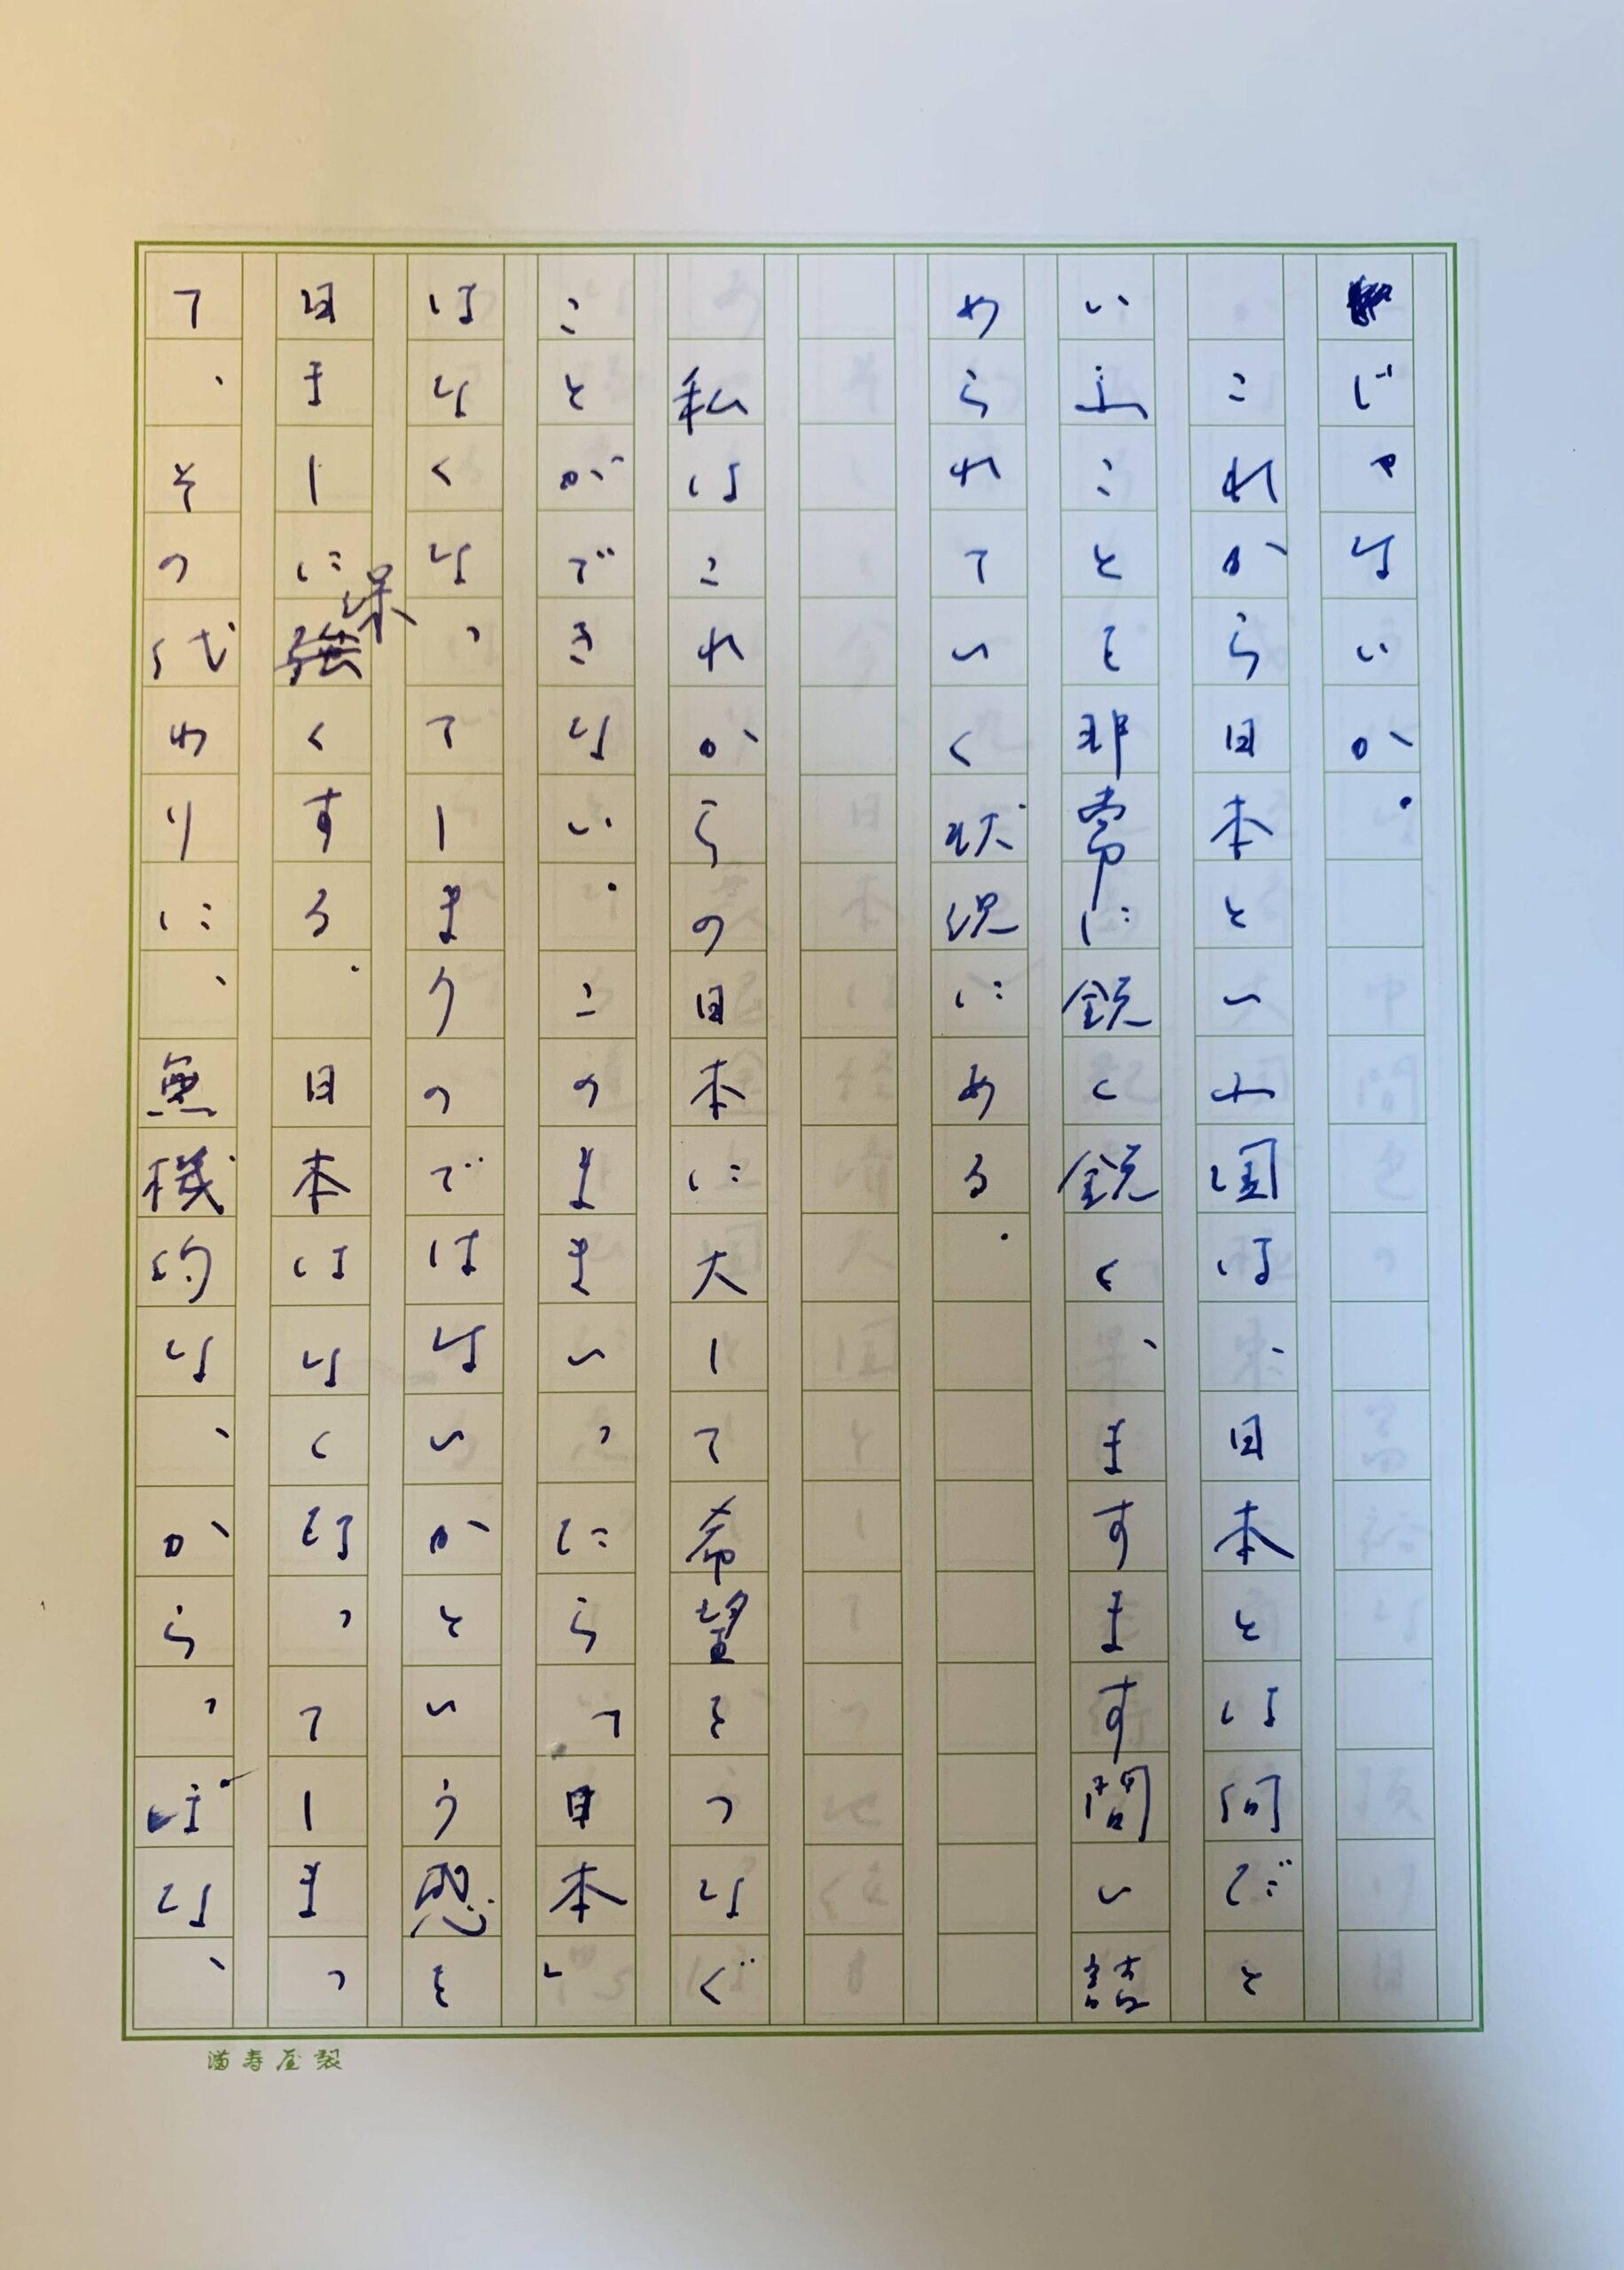 じゃないか。
これから日本といふ国は、日本とは何ぞと
いふことを非常に鋭く鋭く、ますます問い詰
められていく状況にある。
私はこれからの日本に大して希望をつなぐ
ことができない。このままいったら「日本」
はなくなってしまうのではないかという感を
日ましに深くする。日本はなくなってしまっ
て、その代わりに、無機的な、からっぽな、
満寿屋製